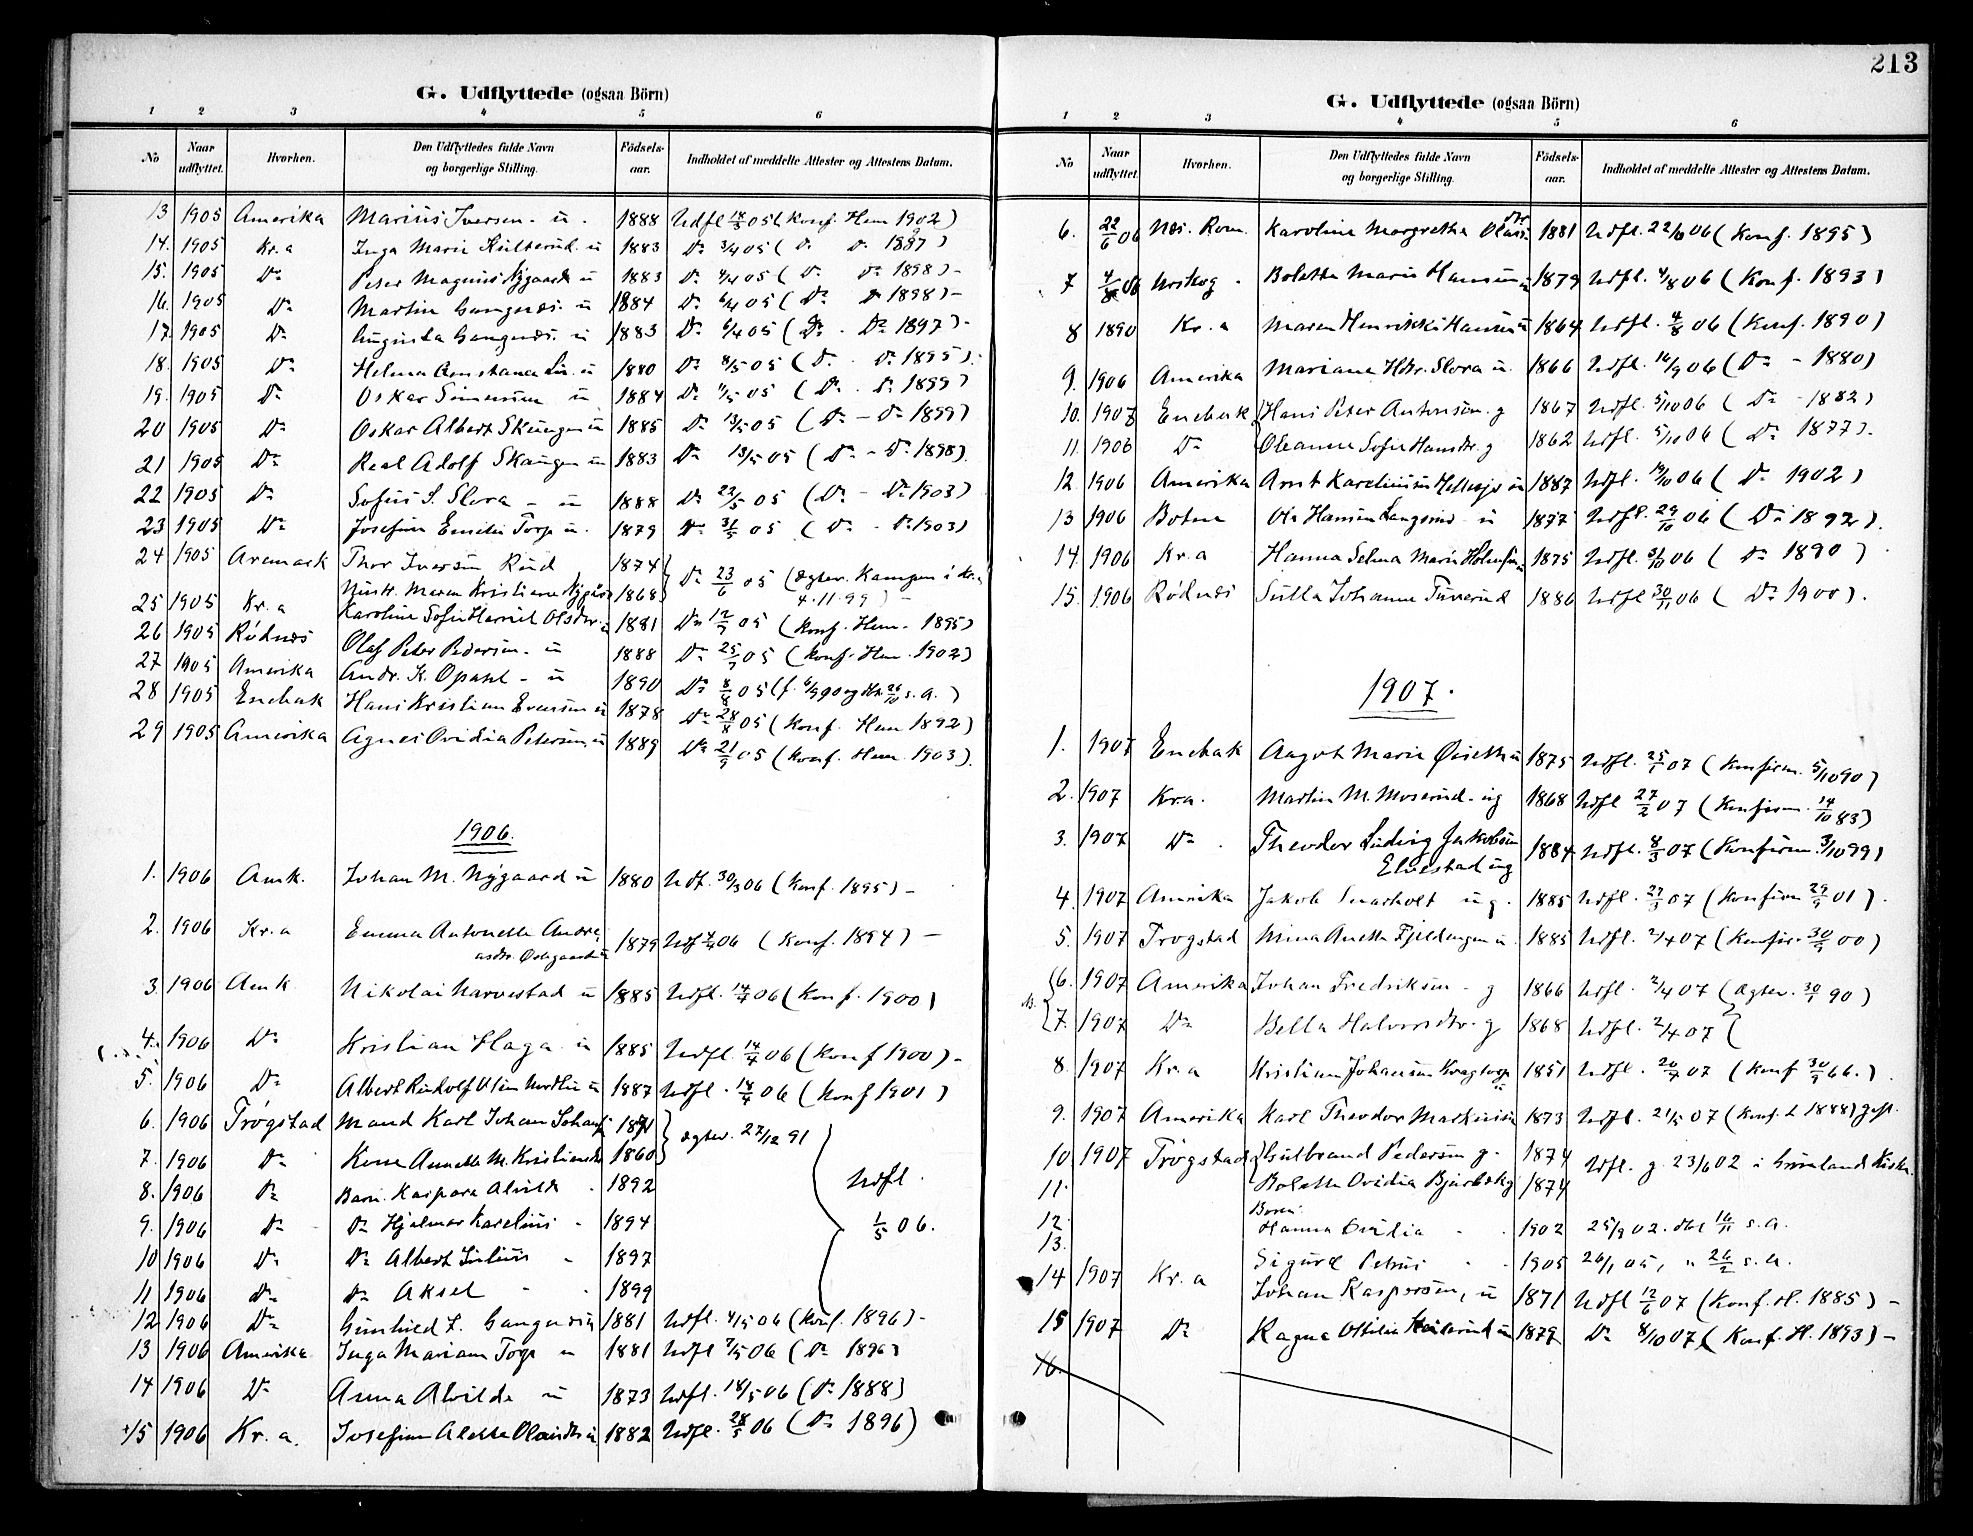 213
G. Udflyttede (ogsaa Börn)
1 2 3 4 5 6
No Naar udflyttet. Hvorhen. Den Udflyttedes fulde Navn og borgerlige Stilling. Födselsaar. Indholdet af meddelte Attester og Attestens Datum.
13 1905 Amerika Marius Iversen - u. 1888 Udfl 18/3 05 (Konf. Hem 1902)
14. 1905 Kr.a Inga Marie u 1883 Do 3/4 05 (Do Do 1897)
15. 1905 Do Peter Magnus Nygaard u 1883 Do 4/4 05 (Do Do 1898) -
16. 1905 Do Martin Gangnæs. u 1884 Do 6/4 05 (Do Do 1898) -
17. 1905 Do Augusta Gangnæs. u 1883 Do 6/4 05 (Do - Do 1897) -
18. 1905 Do Helma Constance Lie. u 1880 Do 8/5 05 (Do - Do 1895).
19. 1905 Do Oskar Simensen u 1884 Do 11/5 05 (Do - Do 1899)
20 1905 Do Oskar Albert Skaugen u 1885 Do 13/5 05 (Do - Do 1899)
21 1905 Do Adolf Skaugen u 1883 Do 13/5 05 (Do - Do 1898).
22 1905 Do Sofus S. Slora - u 1888 Do 22/5 05 (Do - Do 1903)
23 1905 Do Josefine Emilie Torp u. 1879 Do 31/5 05 (Do - Do 1903)
24 1905 Aremark Thor Iversen Rud 1874 Do 23/6 05 (Ægtev. Kampen i Kr.a
Hustr. Maren Kristiane 1868 4.11.99) -
25 1905 Kr.a Karoline Sofie Olsdtr. u 1881 Do 12/7 05 (Konf. Hem. 1895)
26 1905 Rødnæs Olaf Peter Pedersen - u 1888 Do 25/7 05 (Konf. Hem. 1902)
27 1905 Amerika Andr. K. Opsahl - u 1890 Do 8/8 05 (f. 6/9 90 og 26/10 s.a.)
28 1905 Enebak Hans Kristian Evensen u 1878 Do 28/8 05 (Konf. Hem 1892)
29 1905 Amerika Agnes Ovidia Petersen, u 1889 Do 21/9 05 (Konf. Hem. 1903).
1906.
1. 1906 Amk. Johan M. Nygaard u 1880 Udf. 30/3 06 (Konf. 1895) -
2. 1906 Kr.a Emma Antonette Andre,
asdtr. u 1879 Udf 7/4 06 (Konf. 1894) -
3. 1906 Amk Nikolai Narvestad u 1885 Udfl. 14/4 06 (Konf. 1900)
4. 1906 Do Kristian Haga u 1885 Udfl. 14/4 06 (Konf 1900) -
5. 1906 Do Albert Rudolf Olsen Nordlie u 1887 Udfl. 18/4 06 (Konf 1901)
6. 1906 Trøgstad Mand Karl Johan Johans. 1871 Ægtev. 27/12 91
7. 1906 Do Kone Annette M. Kristiansdtr 1860
8. 1906 Do Barn. Kaspara Alvilde 1892 Udfl.
9. 1906 Do Do Hjalmar Karelius - 1894 1/5 06.
10 1906 Do Do Albert Julius - 1897
11 1906 Do Do Aksel - 1899
12 1906 Do L. Gangnæs u 1881 Udfl. 4/5 06 (Konf. 1896) -
13 1906 Amerika Inga Mariane Torp u 1881 Udfl 7/5 06 (Do 1896)
14 1906 Do Anna Alvilde u 1873 Udfl. 18/5 06 (Do 1888)
15 1906 Kr.a. Josefine Alette Olausdtr u 1882 Udfl. 28/5 06 (Do 1896)
G. Udflyttede (ogsaa Börn)
1 2 3 4 5 6
No Naar udflyttet. Hvorhen. Den Udflyttedes fulde Navn og borgerlige Stilling. Födselsaar. Indholdet af meddelte Attester og Attestens Datum.
6. 22/6 06 Næs. Rom. Karoline Margrethe Olausdtr 1881 Udfl. 22/6 06 (Konf. 1895)
7 4/8 06 Urskog - Bolette Marie Hansen u 1879 Udfl. 4/8 06 (Konf. 1893)
8 1890 Kr.a Maren Henrikke Hansen u 1864 Udfl. 4/8 06 (Konf. 1890)
9. 1906 Amerika Mariane Hdtr. Slora u. 1866 Udfl. 14/9 06 (Do - 1880)
10. 1907 Enebak Hans Peter Antonsen. g 1867 Udfl. 5/10 06 (Do - 1882)
11. 1906 Do Oleanne Sofie Hansdtr. g 1862 Udfl. 5/10 06 (Do 1877).
12 1906 Amerika Arnt Karelius Hellesjø u 1887 Udfl. 19/10 06 (Do 1902)
13 1906 Botne Ole Hansen Langsrud - u 1877 Udfl. 29/10 06 (Do 1892).
14. 1906 Kr.a Hanna Selma Marie Holmsen u 1875 Udfl. 06 (Do 1890)
15. 1906 Rødnæs Julla Johanne Tuverud 1886 Udfl 30/11 06 (Do 1900).
1907.
1. 1907 Enebak Aagot Marie u 1875 Udfl. 25/1 07 (Konfirm. 5/10 90)
2. 1907 Kr.a. Martin M. Moserud - ug 1868 Udfl 27/2 07 (Konfirm. 14/10 83)
3. 1907 Do Theodor Ludvig Jakobsen
Elvestad ug 1884 Udfl. 8/3 07 (Konfirm. 3/10 99)
4. 1907 Amerika Jakob Snarholt ug. 1885 Udfl. 27/3 07 (Konfirm 29/9 01).
5. 1907 Trøgstad Mina Anette Fjeldengen u. 1885 Udfl. 2/4 07 (Konfir. 30/9 00)
6. 1907 Amerika Johan Fredriksen - g 1866 Udfl. 2/4 07 (Ægtev. 30/1 90)
7. 1907 Do Bella Halvorsdtr. g 1868 Udfl. 2/4 07
8. 1907 Kr.a Kristian Johansen Kragtorp u 1851 Udfl. 20/4 07 (Konf 30/9 66.).
9. 1907 Amerika Karl Theodor Markusen 1873 Udfl. 21/5 07 (Konf. 1888) gift.
10 1907 Trøgstad Gulbrand Pedersen g. 1874 Udfl. g. 23/6 02 i Kirke
11. Bolette Ovidia g 1874
Børn:
12. Hanna Ovidia 1902 25/9 02. dbt 16/11 s.a.
13. Sigurd Petrus 1905 26/1 05, " 26/2 s.a.
14 1907 Kr.a Johan Kaspersen, u 1871 Udfl 12/6 07 (Konf. H. 1885) -
15 1907 Do Ragna Ottilie u 1879 Do 8/10 07 (Konf. H. 1893) -
16.